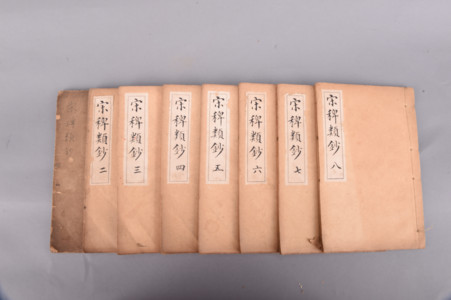 宋稗類鈔 二
宋稗類鈔 三
宋稗類鈔 四
宋稗類鈔 五
宋稗類鈔 六
宋稗類鈔 七
宋稗類鈔 八